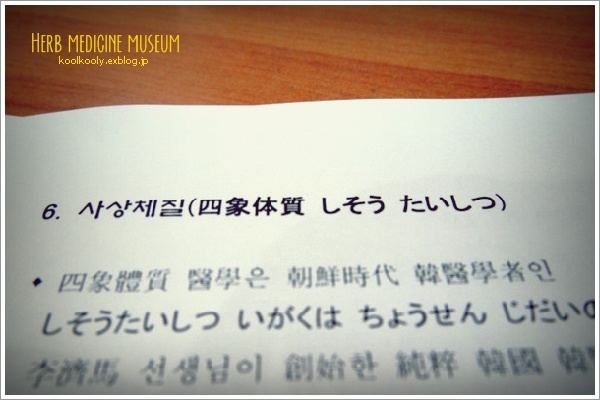 HERB MEDICINE MUSEUM
koolkooly.exblog.jp
6. 사상체질(四象体質 しそう たいしつ)
◆ 四象體質 醫學은 朝鮮時代 韓醫學者인
しそうたいしつ いがくは ちょうせん じだいの
李濟馬 선생님이 創始한 純粹 韓國 韓醫